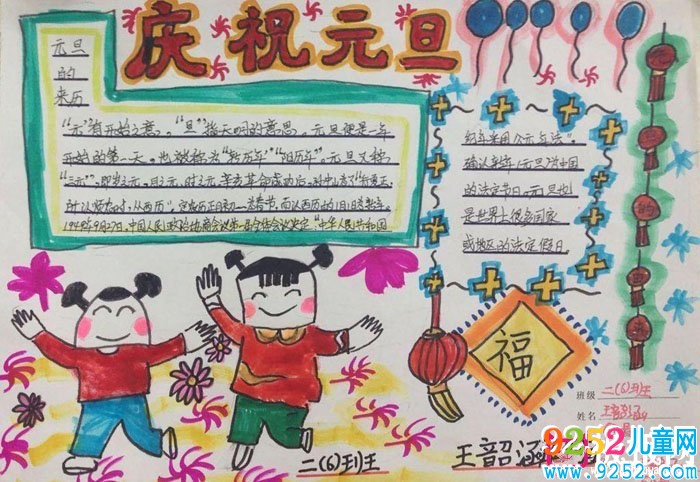 庆祝元旦
元旦
的
来历
"元"有开始之意，"旦"指天明的意思。元旦便是一年
开始的第一天。也被称为"新历年""阳历年"。元旦又称
"三元"，即岁之元、月之元、时之元。辛亥革命成功后，孙中山为了"行夏正，
所以顺农时，从西历"，定农历正月初一为春节，而以西历的1月1日为新年。
1949年9月27日，中国人民政治协商会议第一届全体会议决定"中华人民共和国
纪年采用公元年法"，
确认新年1元旦为中国
的法定节日。元旦也
是世界上很多国家
或地区的法定假日
的
福
班级
二(6)班
姓名
王韶涵
二(6)班
王韶涵
9252儿童网
www.9252.com